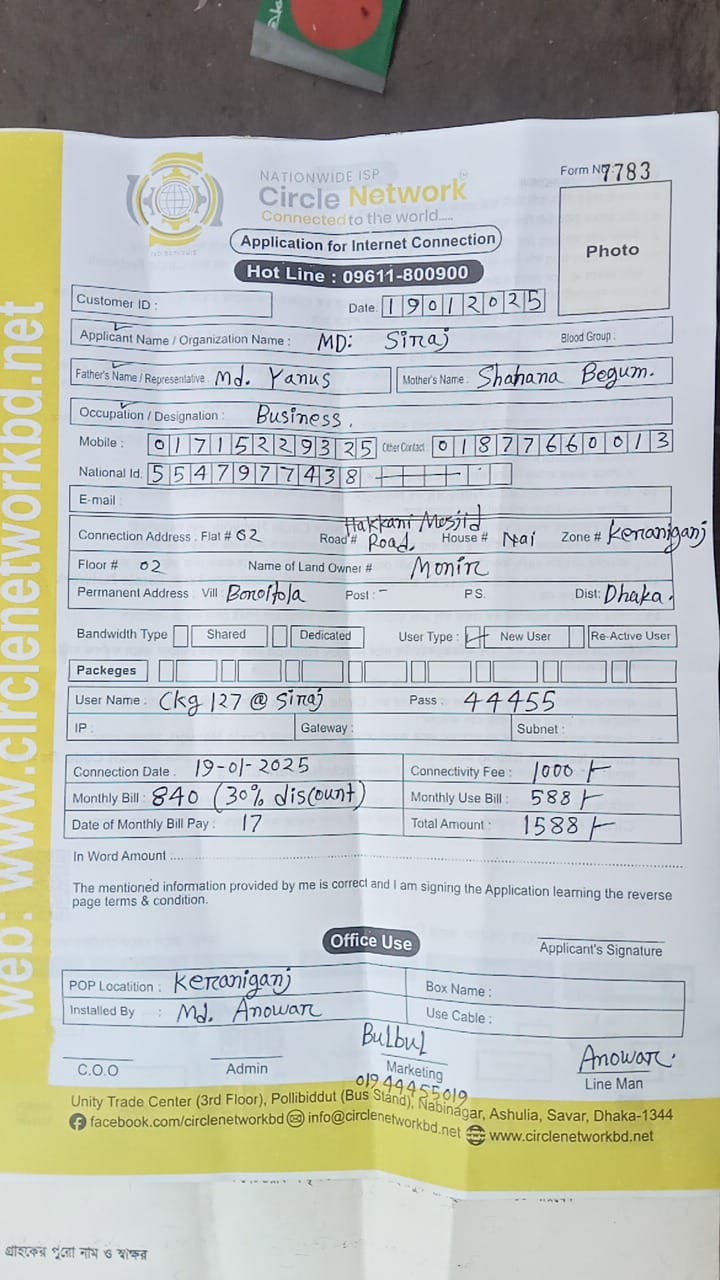 NATIONWIDE ISP
Circle Network
Connected to the world.....
Form No: 7783
Application for Internet Connection
Hot Line : 09611-800900
Photo
Customer ID :
Date. 19012025
Applicant Name / Organization Name : MD: Siraj Blood Group :
Father's Name / Representative : Md. Yanus Mother's Name : Shahana Begum.
Occupation / Designation : Business.
Mobile : 01715229325 Other Contact 01877660013
National Id. 5547977438
E-mail
Connection Address . Flat # 02 Road # Hakkani Mosjid Road. House # Nai Zone # Keraniganj
Floor # 02 Name of Land Owner # Monir
Permanent Address : Vill : Boroitola Post : - P.S. Dist: Dhaka.
Bandwidth Type Shared Dedicated User Type : New User Re-Active User
Packeges
User Name : Ckg 127 @ Siraj Pass : 44455
IP : Gateway : Subnet :
Connection Date . 19-01-2025 Connectivity Fee : 1000/-
Monthly Bill : 840 (30% discount) Monthly Use Bill : 588/-
Date of Monthly Bill Pay : 17 Total Amount : 1588/-
In Word Amount :
The mentioned information provided by me is correct and I am signing the Application learning the reverse
page terms & condition.
Office Use
Applicant's Signature
POP Locatition : Keraniganj Box Name :
Installed By : Md. Anowar Use Cable :
Bulbul Anowar.
C.O.O Admin Marketing Line Man
01944455019
Unity Trade Center (3rd Floor), Pollibiddut (Bus Stand), Nabinagar, Ashulia, Savar, Dhaka-1344
facebook.com/circlenetworkbd info@circlenetworkbd.net www.circlenetworkbd.net
web: www.circlenetworkbd.net
গ্রাহকের পুরো নাম ও স্বাক্ষর